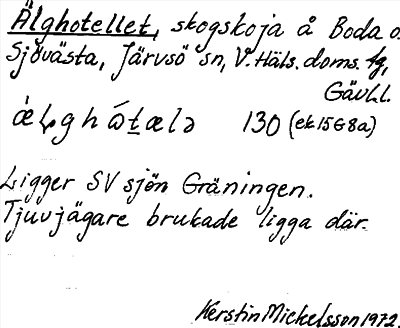 Älghotellet, skogskoja å Boda o.
Sjövästa, Järvsö sn, V. Häls. doms. tg,
Gävl.l.
130 (ek 15G8a)
Ligger SV sjön Gräningen.
Tjuvjägare brukade ligga där.
Kerstin Mickelsson 1972.